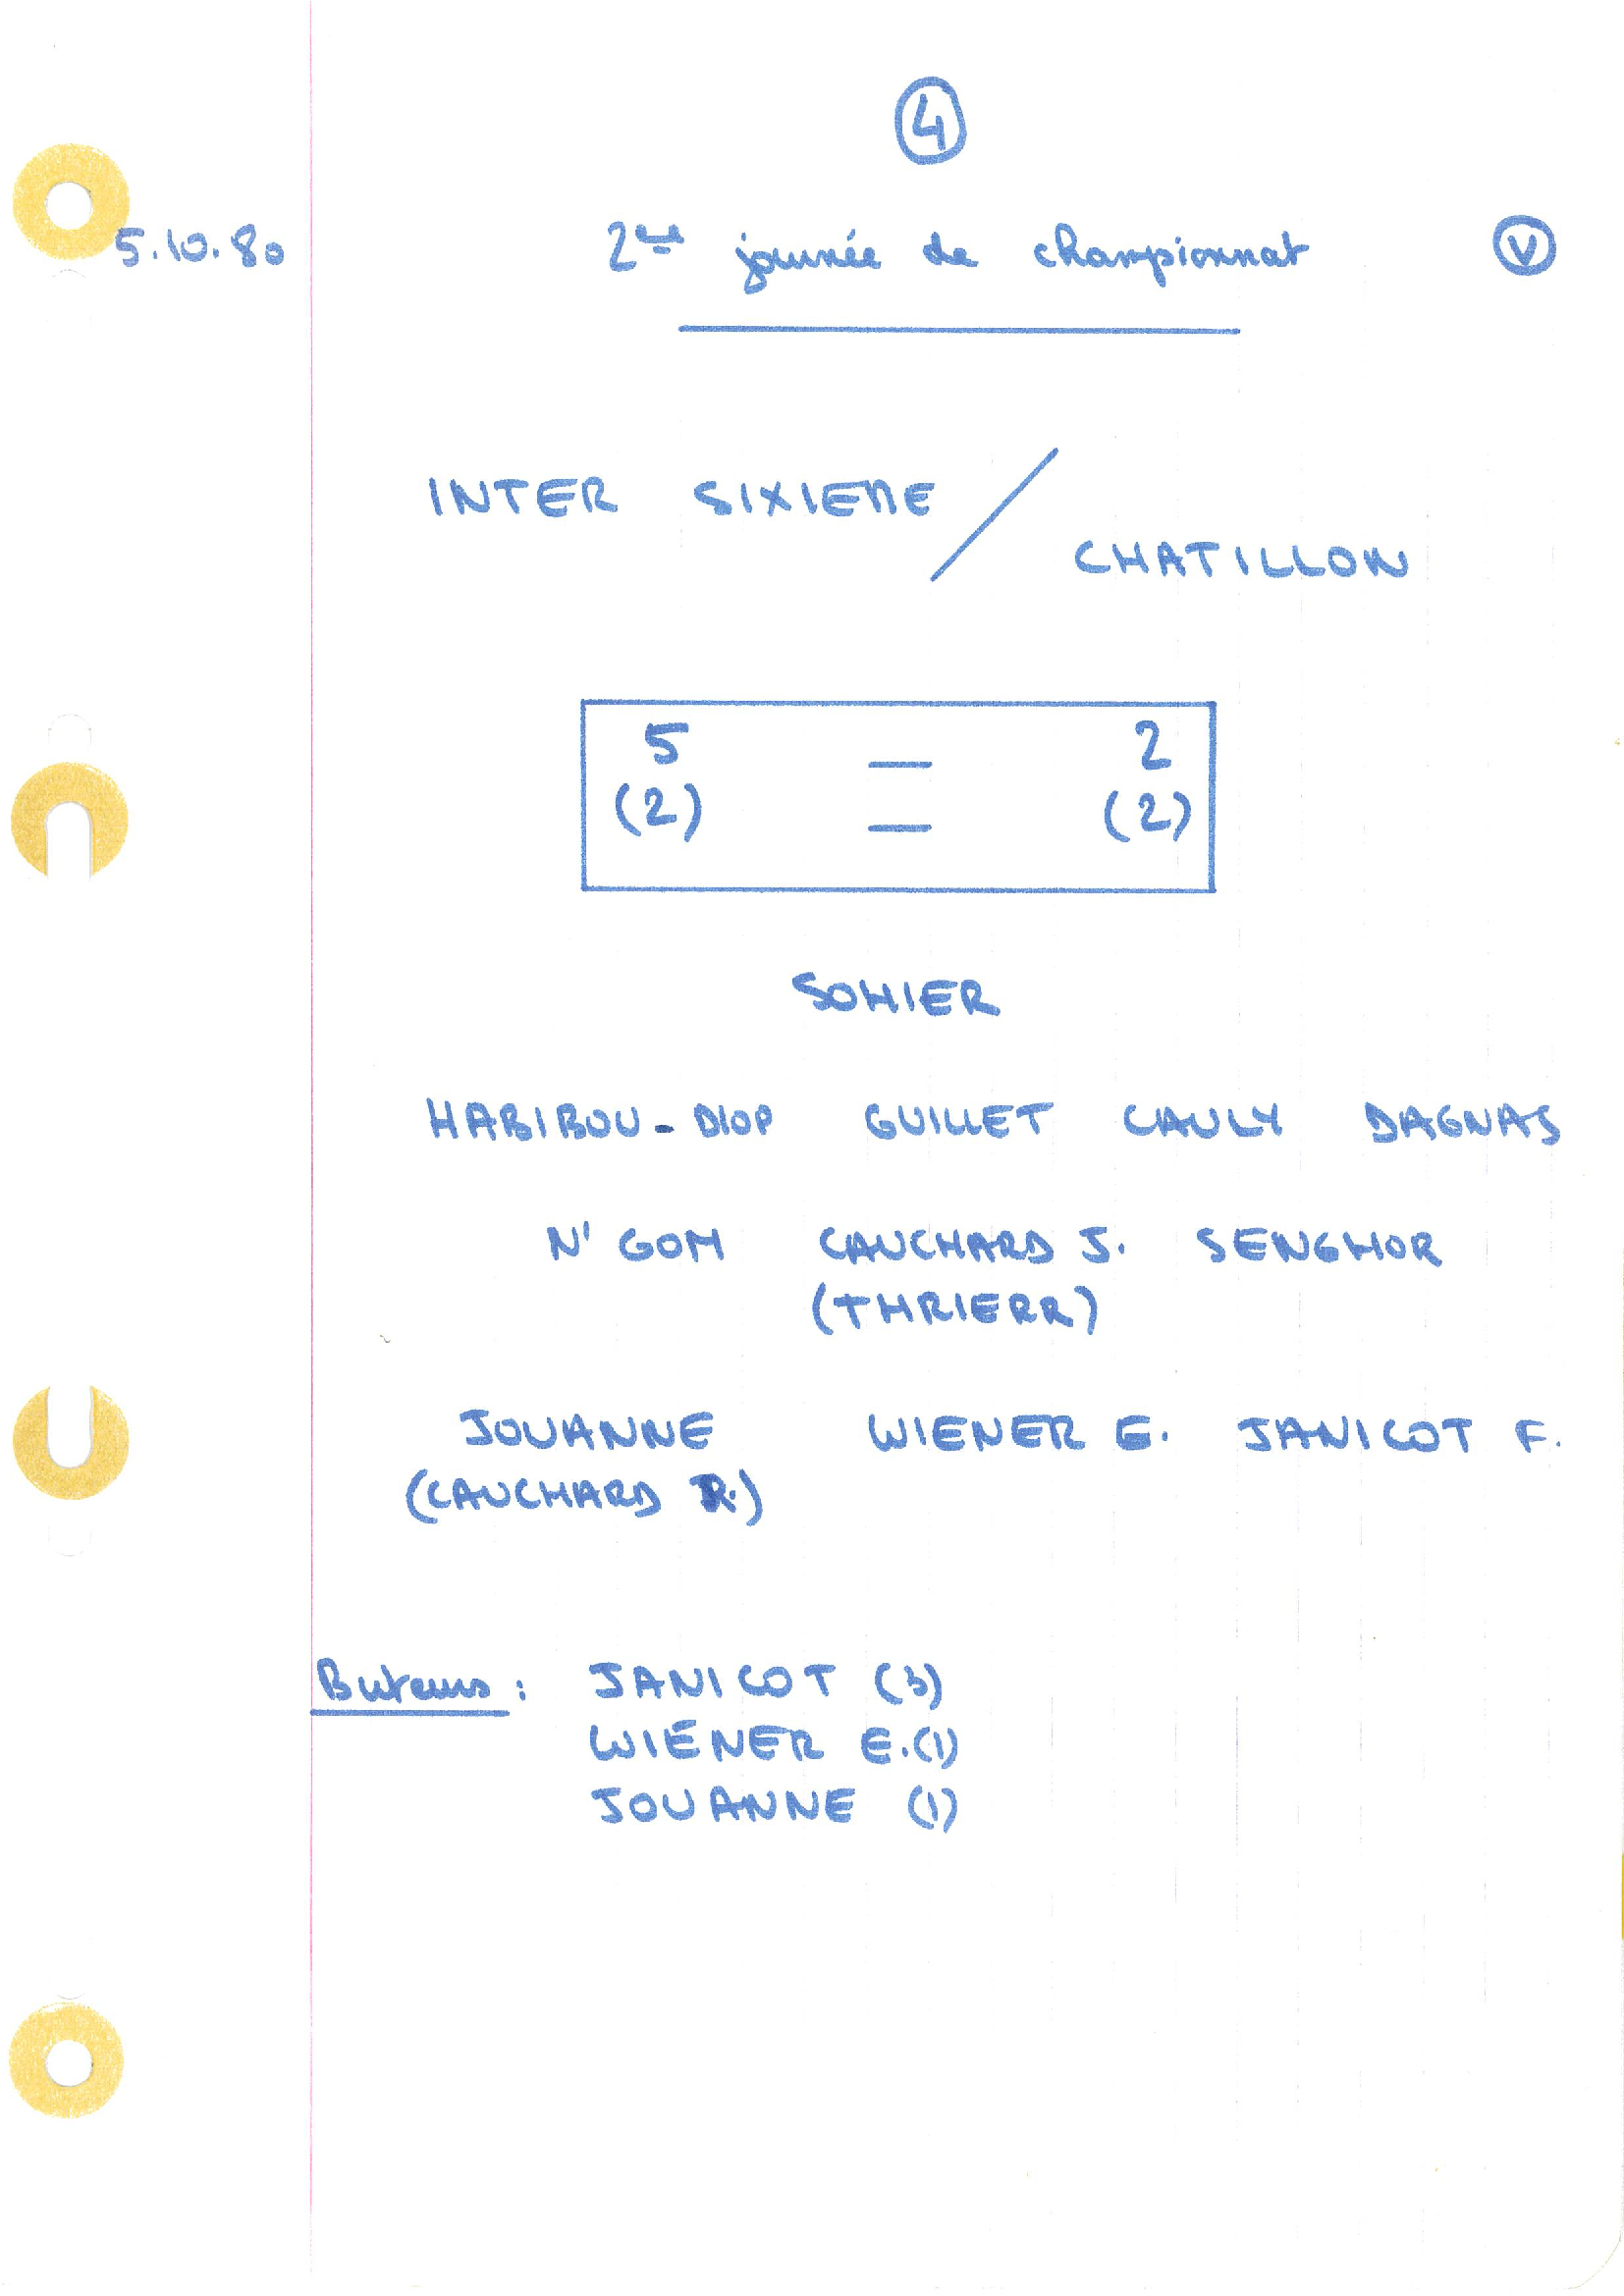 4
5.10.80 2ème journée de championnat V
INTER SIXIEME /
CHATILLON
5 — 2
(2) — (2)
SOHIER
HABIBOU-DIOP GUILLET CAULY DAGNAS
N'GOM CAUCHARD J. SENGHOR
(THRIERR)
JOUANNE WIENER E. JANICOT F.
(CAUCHARD R.)
Buteurs : JANICOT (3)
WIENER E.(1)
JOUANNE (1)